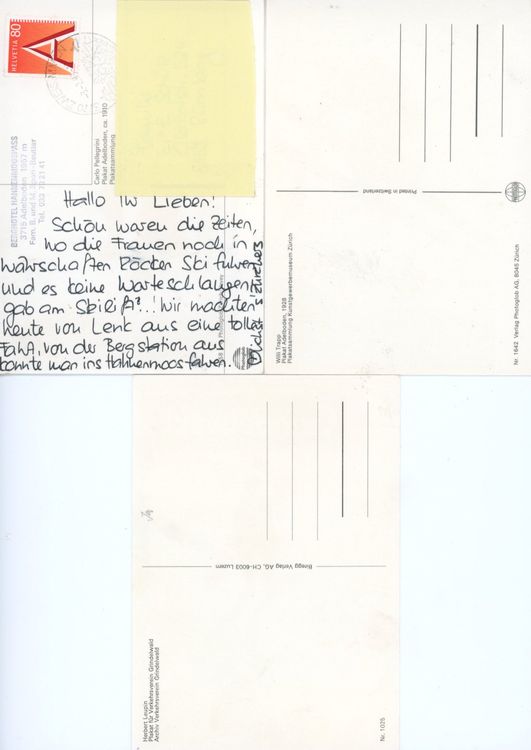 HELVETIA 80
A
BERGHOTEL HAHNENMOOSPASS
3715 Adelboden, 1957 m
Fam. B. und M. Spori-Beutler
Tel. 033 73 21 41
Carlo Pellegrini
Plakat Adelboden, ca. 1910
Plakatsammlung
Hallo Ihr Lieben!
Schön waren die Zeiten,
wo die Frauen noch in
währschaften Röcken Ski fuhren
und es keine Warteschlangen
gab am Skilift..! Wir machten
heute von Lenk aus eine tolle
Fahrt, von der Bergstation aus
konnte man ins Hahnenmoos fahren.
Printed in Switzerland
Willi Trapp
Plakat Adelboden, 1938
Plakatsammlung Kunstgewerbemuseum Zürich
Nr. 1642 Verlag Photoglob AG, 8045 Zürich
Biregg Verlag AG, CH-6003 Luzern
Herbert Leupin
Plakat für Verkehrsverein Grindelwald
Archiv Verkehrsverein Grindelwald
Nr. 1025